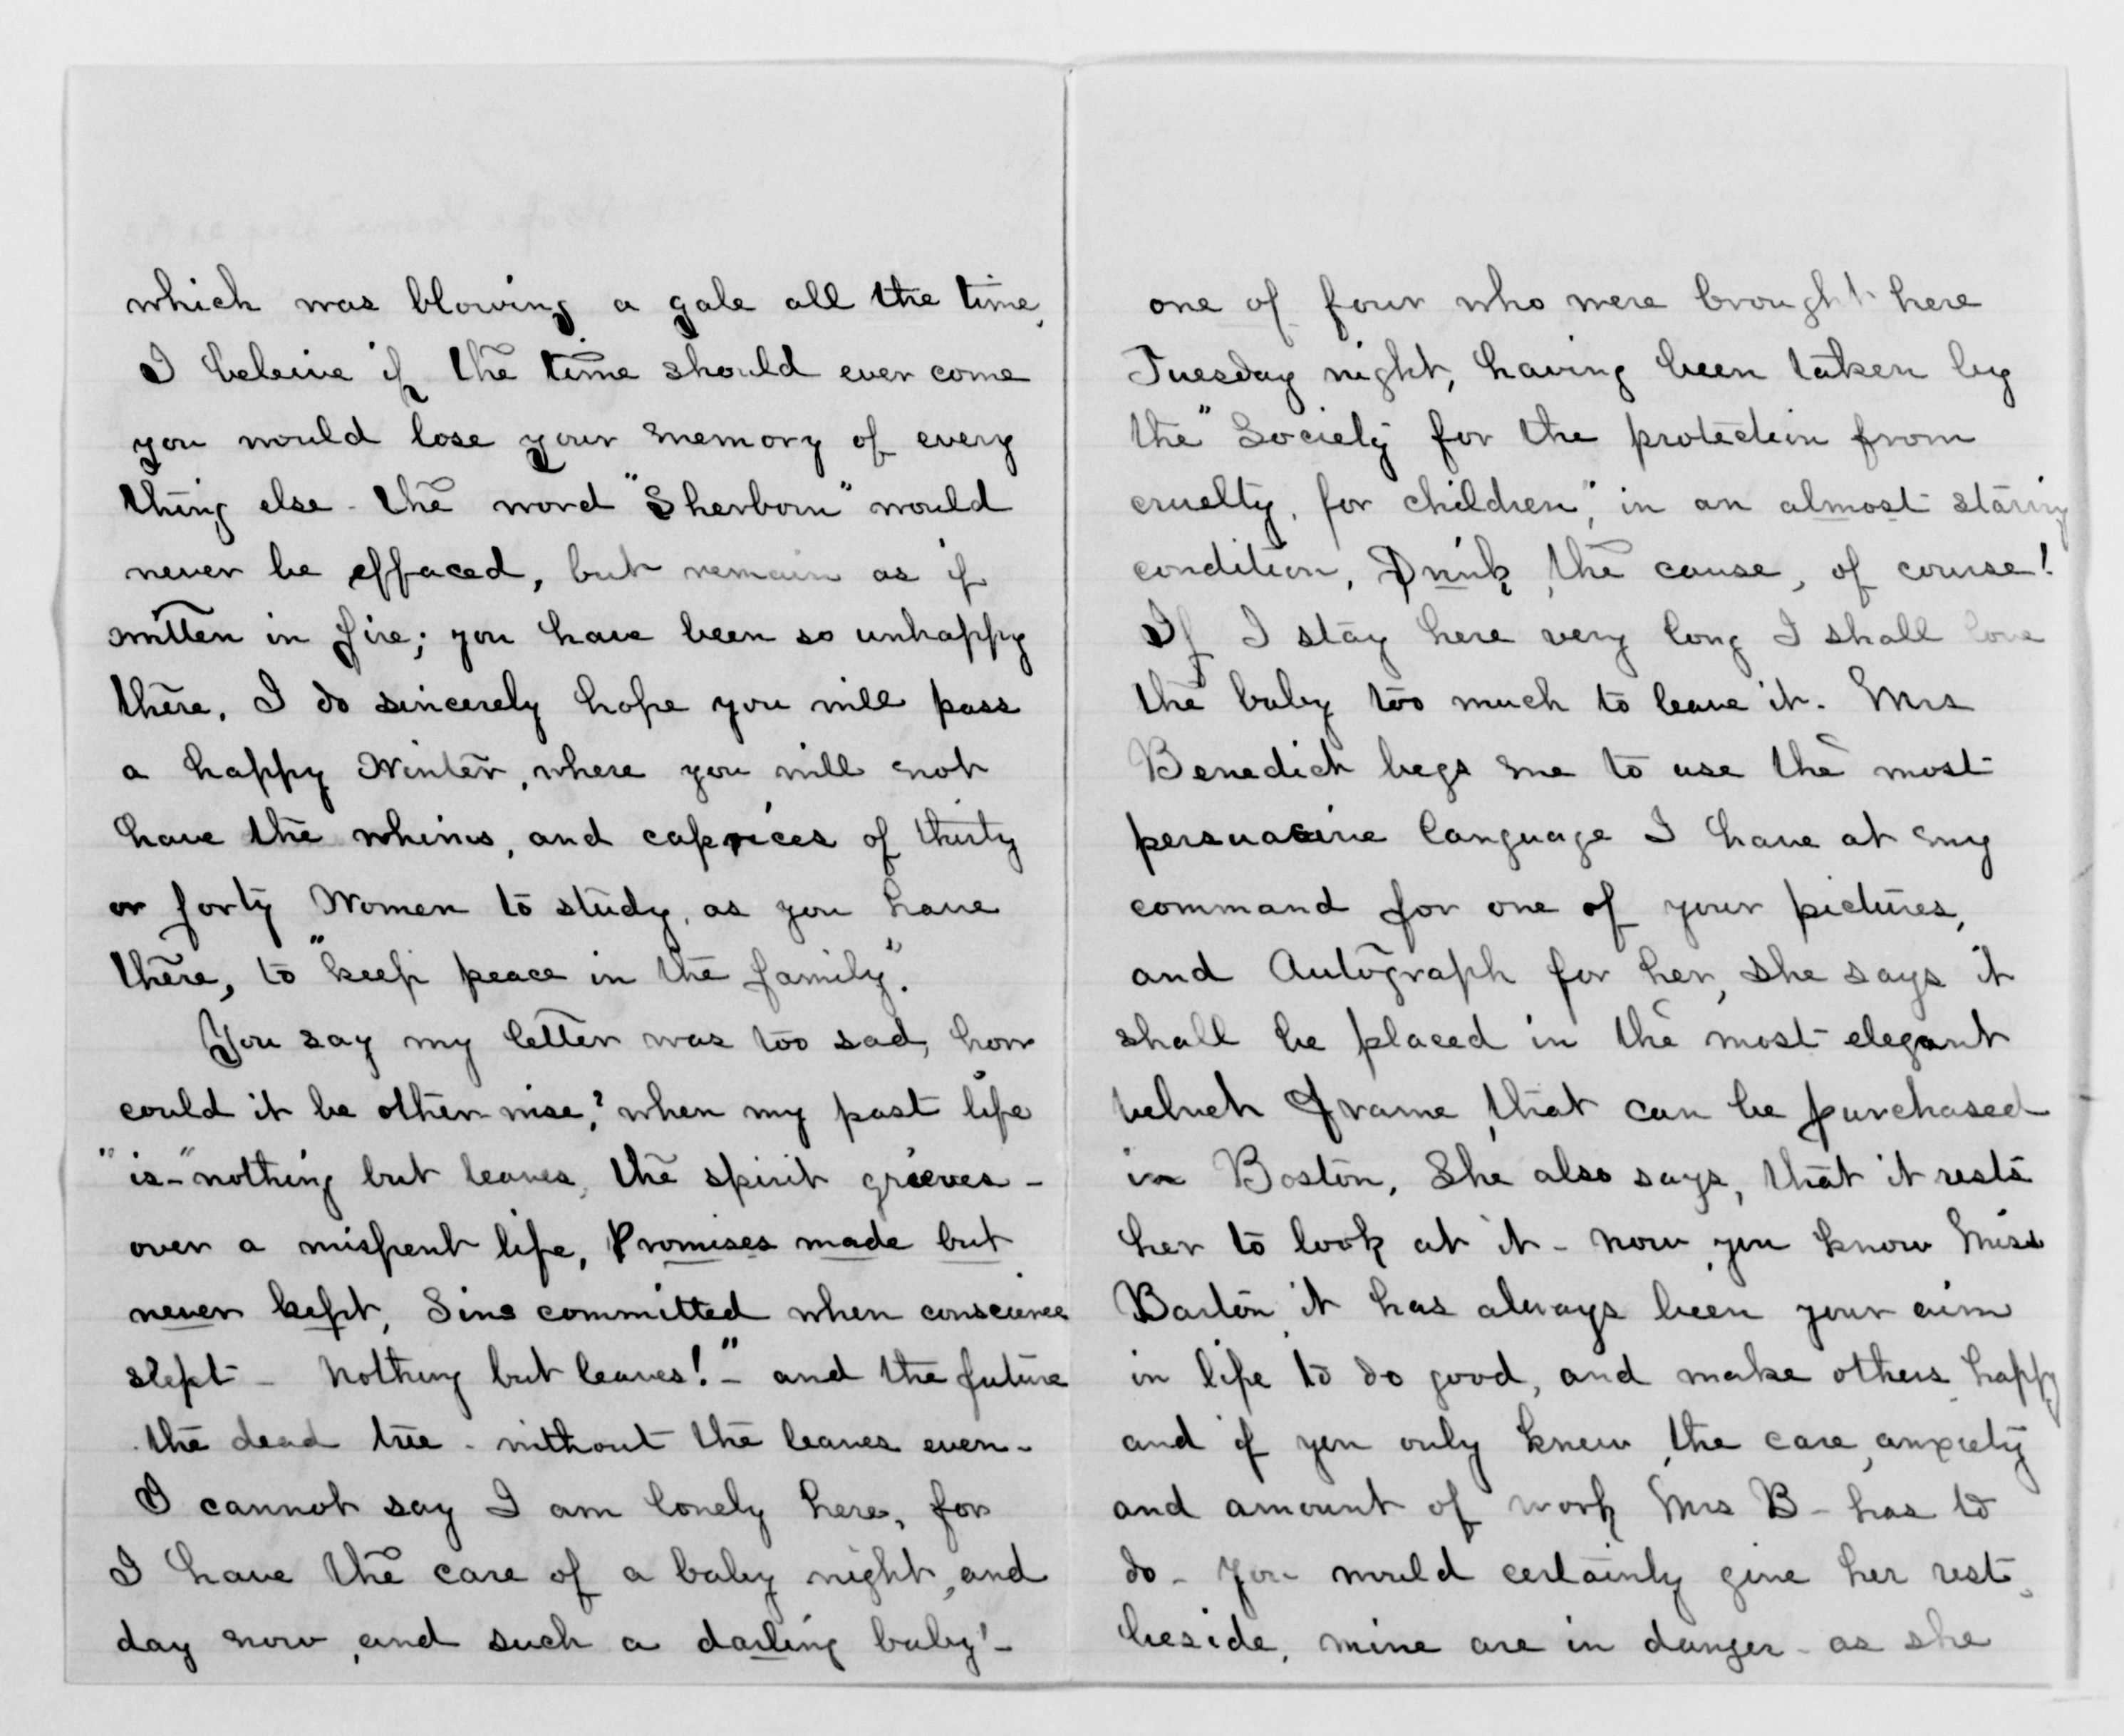 which was blowing a gale all the time,
I beleive if the time should ever come
you would lose your memory of every
thing else - the word "Sherborn" would
never be effaced, but remain as if
written in fire; you have been so unhappy
there. I do sincerely hope you will pass
a happy Winter, where you will not
have the whims, and caprices of thirty
or forty Women to study, as you have
there, to "keep peace in the family".
You say my letter was too sad, how
could it be other-wise? when my past life
"is-"nothing but leaves, the spirit grieves -
over a mispent life, Promises made but
never kept, Sins committed when conscience
slept - Nothing but leaves!" - and the future
the dead tree - without the leaves even -
I cannot say I am lonely here, for
I have the care of a baby night, and
day now, and such a darling baby! -
one of four who were brought here
Tuesday night, having been taken by
the "Society for the protection from
cruelty, for children", in an almost starving
condition, Drink, the cause, of course!
If I stay here very long I shall love
the baby too much to leave it. Mrs
Benedict begs me to use the most
persuasive language I have at my
command for one of your pictures,
and Autograph for her, she says it
shall be placed in the most elegant
velvet frame, that can be purchased
in Boston. She also says, that it rests
her to look at it - now, you know Miss
Barton, it has always been your aim
in life to do good, and make others happy
and if you only knew, the care, anxiety
and amount of work Mrs B - has to
do - you would certainly give her rest.
beside, mine are in danger - as she